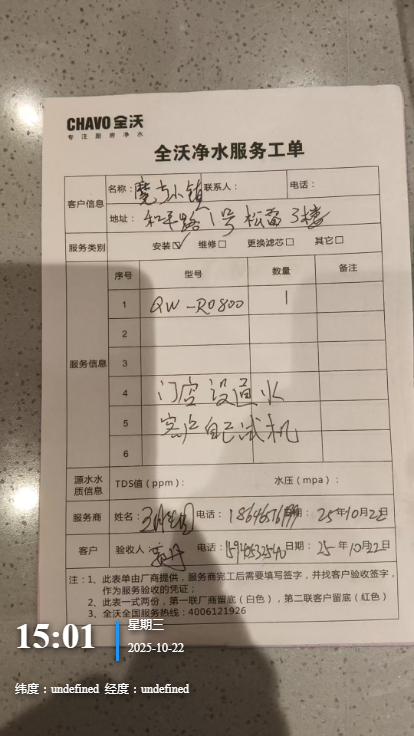 CHAVO 全沃
专注厨房净水
全沃净水服务工单
客户信息 名称： 魔方小镇 联系人： 电话：
地址： 和平路1号松雷3楼
服务类别 安装☑ 维修□ 更换滤芯□ 其它□
服务信息 序号 型号 数量 备注
1 QW-RO800 1
2
3
4 门店没通水
5 客户自己试机
6
源水水质信息 TDS值（ppm）： 水压（mpa）：
服务商 姓名： 电话： 日期： 25年10月22日
客户 验收人 电话： 日期： 25年10月22日
注：1、此表单由厂商提供，服务商完工后需要填写签字，并找客户验收签字，
作为服务验收的凭证；
2、此表一式两份，第一联厂商留底（白色），第二联客户留底（红色）
3、全沃全国服务热线：4006121926
15:01 星期三
2025-10-22
纬度：undefined 经度：undefined